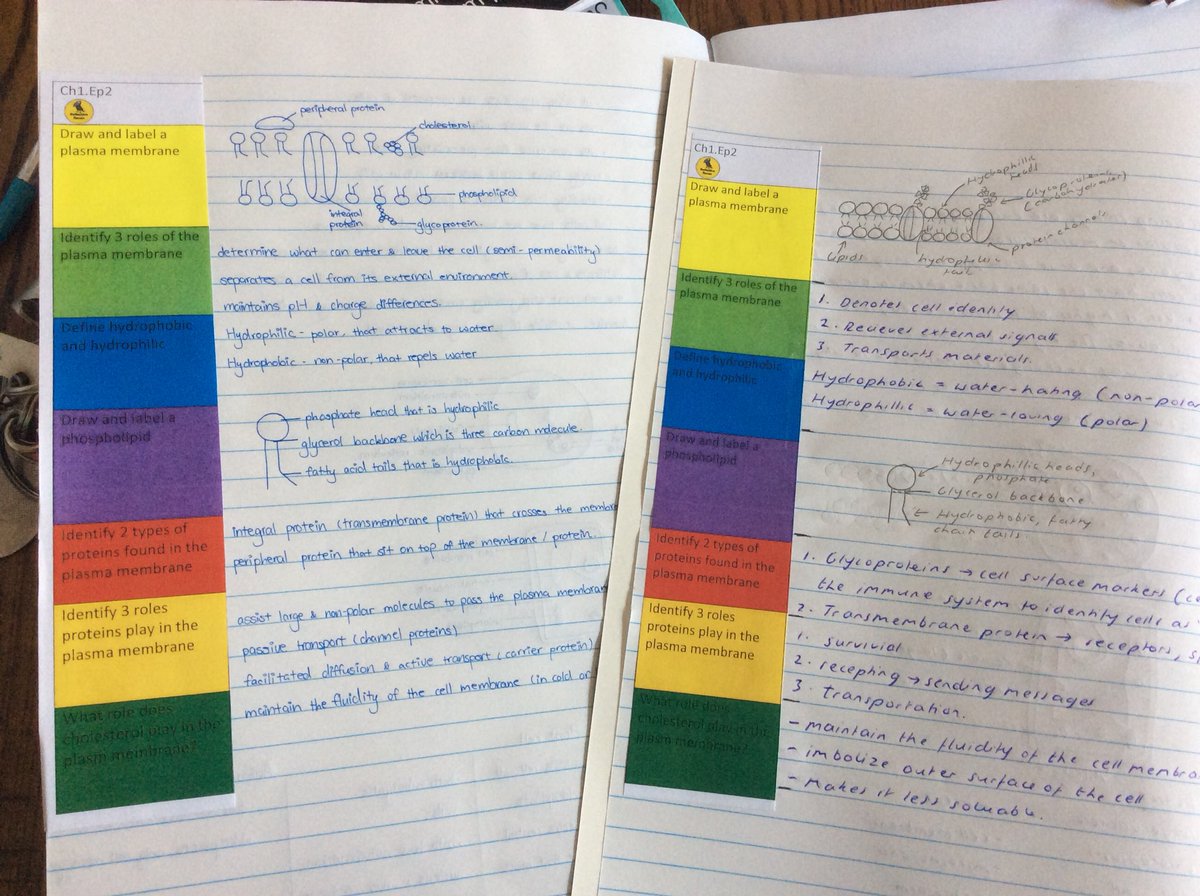 Ch1.Ep2
Draw and label a
plasma membrane
Identify 3 roles of the
plasma membrane
Define hydrophobic
and hydrophilic
Draw and label a
phospholipid
Identify 2 types of
proteins found in the
plasma membrane
Identify 3 roles
proteins play in the
plasma membrane
What role does
cholesterol play in the
plasm membrane?
peripheral protein
cholesterol.
phospholipid
integral
protein
glycoprotein.
determine what can enter & leave the cell (semi-permeability)
separates a cell from its external environment.
maintains pH & charge differences.
Hydrophilic - polar, that attracts to water
Hydrophobic - non-polar, that repels water
phosphate head that is hydrophilic
glycerol backbone which is three carbon molecule.
fatty acid tails that is hydrophobic.
integral protein (transmembrane protein) that crosses the
peripheral protein that sit on top of the membrane / protein.
assist large & non-polar molecules to pass the plasma
passive transport (channel proteins)
facilitated diffusion & active transport (carrier protein)
maintain the fluidity of the cell membrane (in cold or
Ch1.Ep2
Draw and label a
plasma membrane
Identify 3 roles of the
plasma membrane
Define hydrophobic
and hydrophilic
Draw and label a
phospholipid
Identify 2 types of
proteins found in the
plasma membrane
Identify 3 roles
proteins play in the
plasma membrane
What role does
cholesterol play in the
plasm membrane?
Hydrophillic
heads
protein channels
Lipids
tail
1. Denotes cell identity
2. Reciever external signals
3. Transports materials.
Hydrophobic = water-hating (non-polar
Hydrophillic = water-loving (polar)
Hydrophillic heads,
phosphate
Glycerol backbone
Hydrophobic, fatty
chain tails.
1. Glycoproteins → cell surface markers
the immune system to identify cells as
2. Transmembrane protein → receptors,
1. survivial
2. recepting → sending messages
3. Transportation.
- maintain the fluidity of the cell
- imbolize outer surface of the cell
- Makes it less soluable.